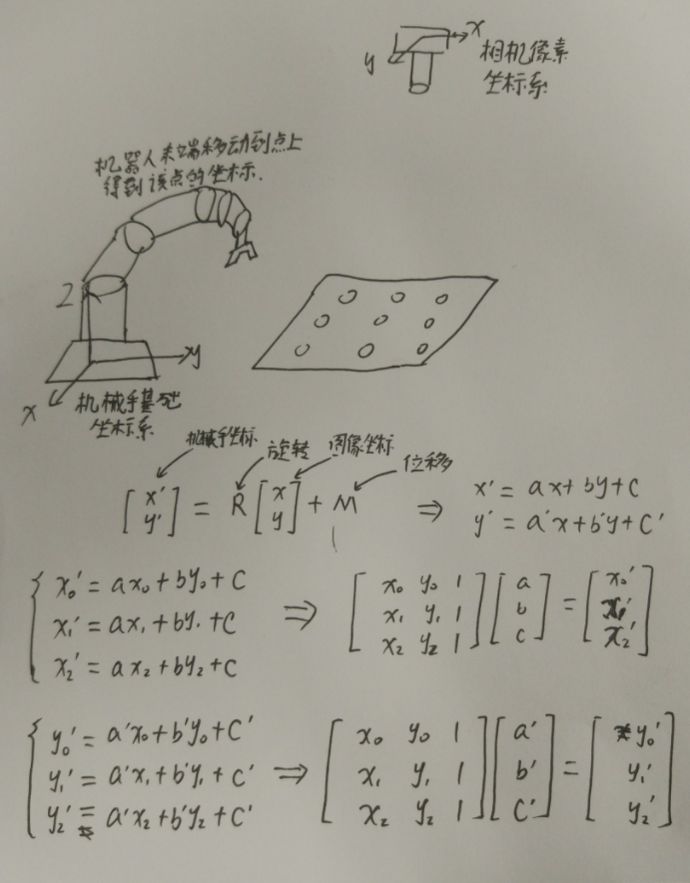 x
y
相机像素
坐标系
机器人末端移动到点上
得到该点的坐标.
Z
y
x
机械手基地
坐标系
机械手坐标
旋转
图像坐标
位移
[x' y'] = R [x y] + M ⇒ x' = ax + by + c
y' = a'x + b'y + c'
x₀' = ax₀ + by₀ + c
x₁' = ax₁ + by₁ + c
x₂' = ax₂ + by₂ + c
⇒ [x₀ y₀ 1
x₁ y₁ 1
x₂ y₂ 1] [a b c] = [x₀' x₁' x₂']
y₀' = a'x₀ + b'y₀ + c'
y₁' = a'x₁ + b'y₁ + c'
y₂' = a'x₂ + b'y₂ + c'
⇒ [x₀ y₀ 1
x₁ y₁ 1
x₂ y₂ 1] [a' b' c'] = [y₀' y₁' y₂']